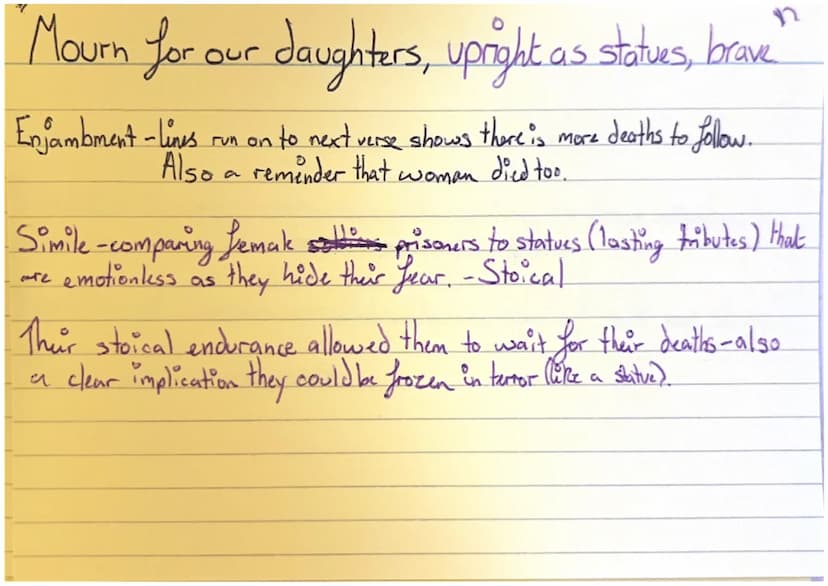 n
Mourn for our daughters, upright as statues, brave
Enjambment - lines run on to next verse shows there is more deaths to follow.
Also a reminder that woman died too.
Simile - comparing female prisoners to statues (lasting tributes) that
are emotionless as they hide their fear. - Stoical
Their stoical endurance allowed them to wait for their deaths - also
a clear implication they could be frozen in terror (like a statue).